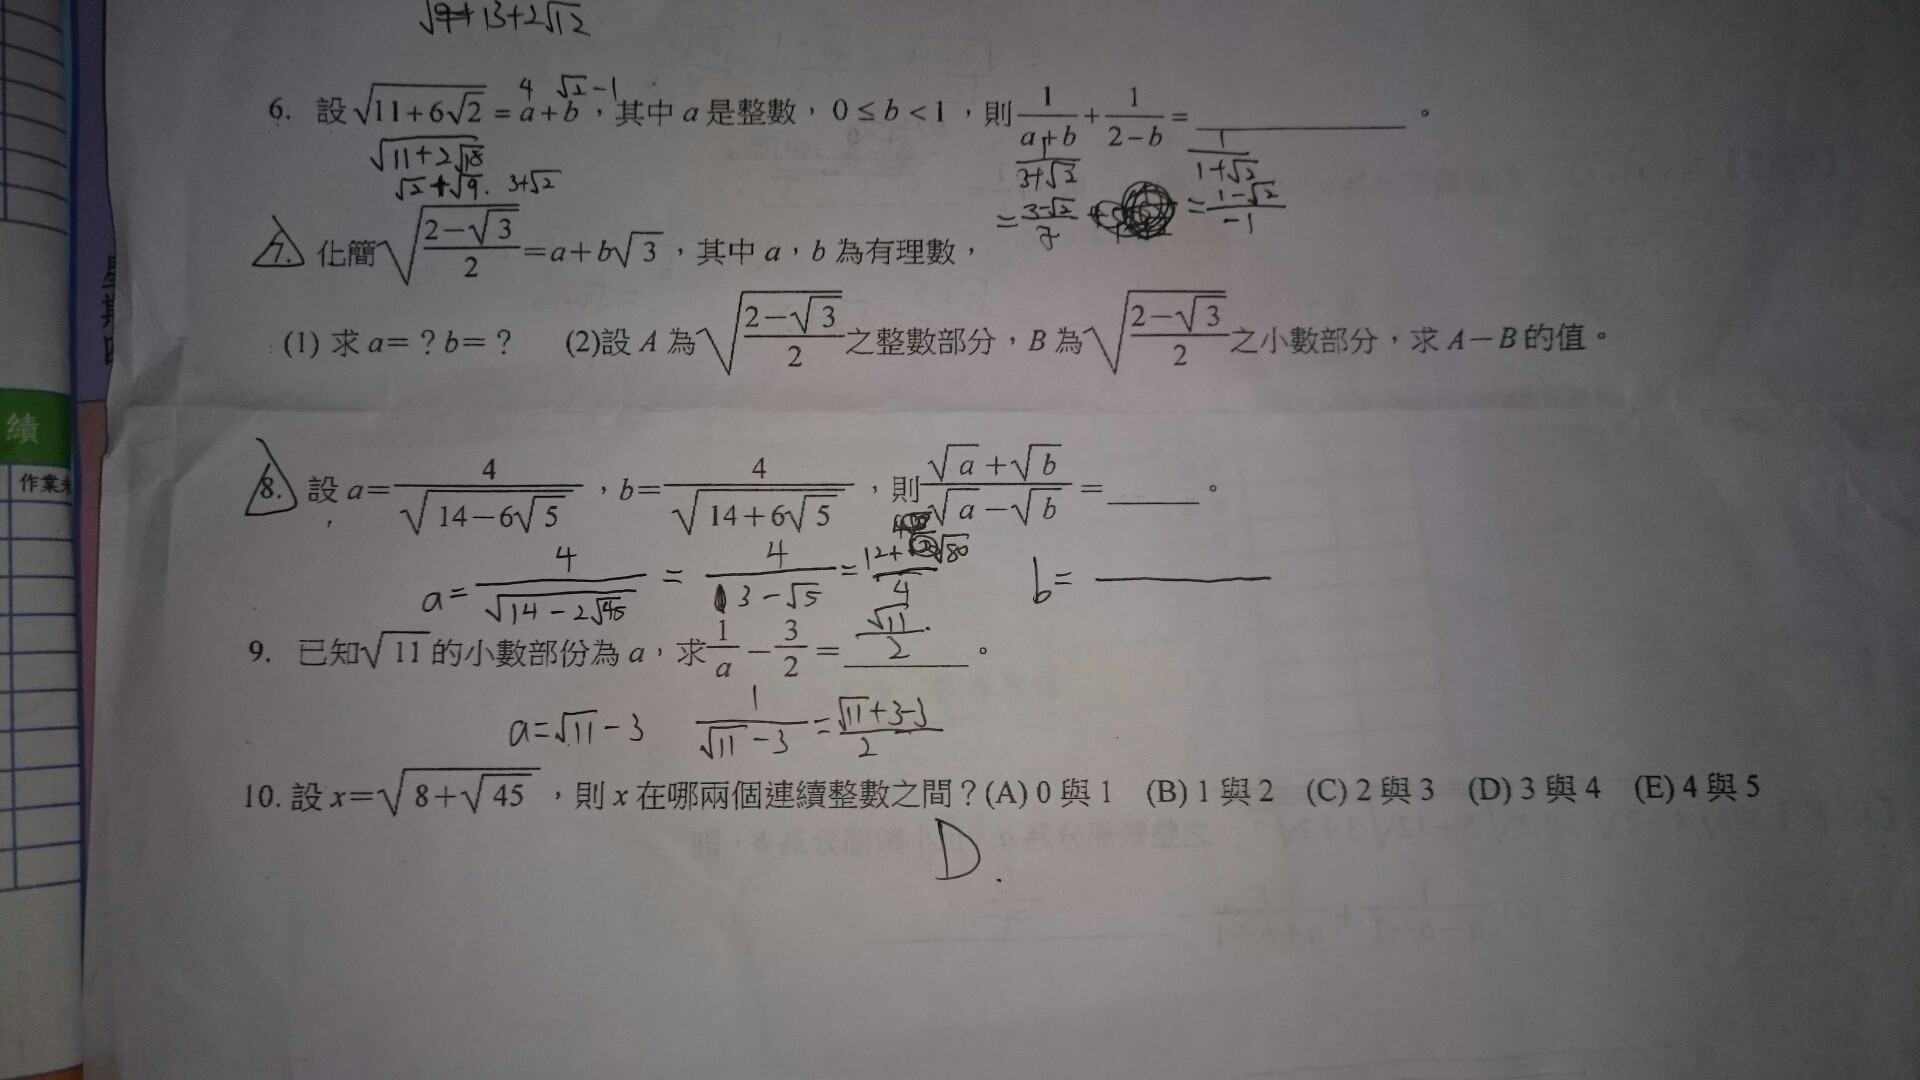 √9+13+2√12
6. 設√(11+6√2) = a+b，其中 a 是整數，0≤b<1，則 1/(a+b) + 1/(2−b) = ______。
4 √2−1
√(11+2√18)
√2+√9. 3+√2
1/(3+√2)
1/(1+√2)
= (3−√2)/7
= (1−√2)/−1
7. 化簡√((2−√3)/2) = a+b√3，其中 a，b 為有理數，
(1) 求 a=？b=？ (2)設 A 為√((2−√3)/2)之整數部分，B 為√((2−√3)/2)之小數部分，求 A−B 的值。
8. 設 a= 4/√(14−6√5)，b= 4/√(14+6√5)，則 (√a+√b)/(√a−√b) = ______。
a= 4/√(14−2√45) = 4/(3−√5) = (12+√80)/4 b=
9. 已知√11的小數部份為 a，求 1/a − 3/2 = ______。
√11/2
a=√11−3 1/(√11−3) = (√11+3−3)/2
10. 設 x=√(8+√45)，則 x 在哪兩個連續整數之間？(A) 0 與 1 (B) 1 與 2 (C) 2 與 3 (D) 3 與 4 (E) 4 與 5
D.
績
作業
星期四